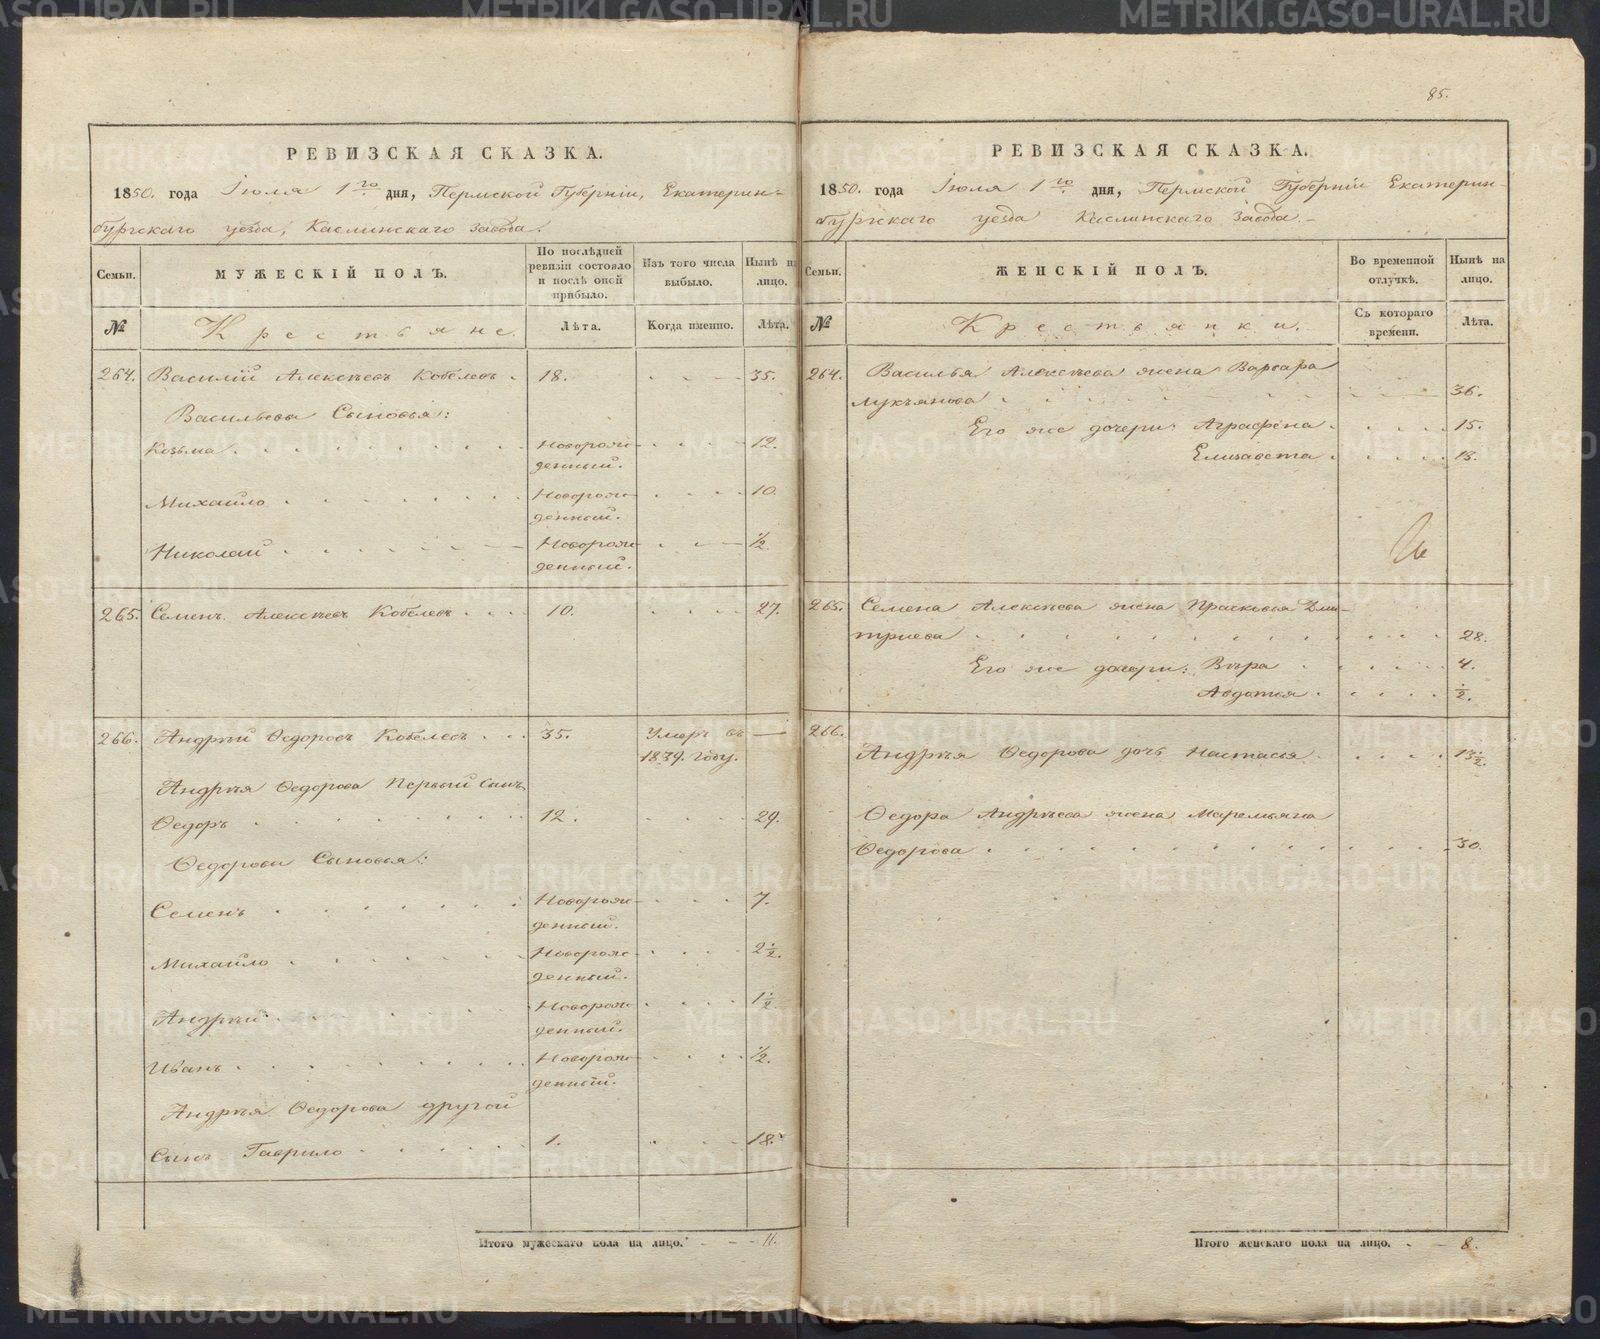 85.
РЕВИЗСКАЯ СКАЗКА.
1850. года Іюля 1го дня, Пермской Губерніи, Екатерин-
бургскаго уезда, Каслинскаго завода.
Семьи.
МУЖЕСКІЙ ПОЛЪ.
По послѣдней ревизіи состояло и послѣ оной прибыло.
Изъ того числа выбыло.
Нынѣ на лицо.
№
Крестьяне.
Лѣта.
Когда именно.
Лѣта.
264. Василій Алексѣевъ Кобелевъ. 18. 35.
Васильевы Сыновья:
Козьма Новорож- 12.
денный.
Михайло Новорож- 10.
денный.
Николай Новорож- 1/2.
денный.
265. Семенъ Алексѣевъ Кобелевъ 10. 27.
266. Андрѣй Ѳедоровъ Кобелевъ 35. Умеръ въ —
1839. году.
Андрѣя Ѳедорова Первый Сынъ
Ѳедоръ 12. 29.
Ѳедоровы Сыновья:
Семенъ Новорож- 7.
денный.
Михайло Новорож- 2 1/2.
денный.
Андрѣй Новорож- 1 1/2.
денный.
Иванъ Новорож- 1/2.
денный.
Андрѣя Ѳедорова другой
Сынъ Гаврило 1. 18.
Итого мужескаго пола на лицо. 11.
РЕВИЗСКАЯ СКАЗКА.
1850. года Іюля 1го дня, Пермской Губерніи Екатерин-
бургскаго уезда Каслинскаго завода
Семьи.
ЖЕНСКІЙ ПОЛЪ.
Во временной отлучкѣ.
Нынѣ на лицо.
№
Крестьянки.
Съ котораго времени.
Лѣта.
264. Василья Алексѣева жена Варвара
Лукъянова 36.
Его же дочери: Аграфена 15.
Елизавета 13.
265. Семена Алексѣева жена Прасковья Дми-
триева 28.
Его же дочери: Вѣра 4.
Авдотья 1/2.
266.
Андрѣя Ѳедорова дочь Настасья 13 1/2.
Ѳедора Андрѣева жена Маремьяна
Ѳедорова 30.
Итого женскаго пола на лицо. 8.
METRIKI.GASO-URAL.RU